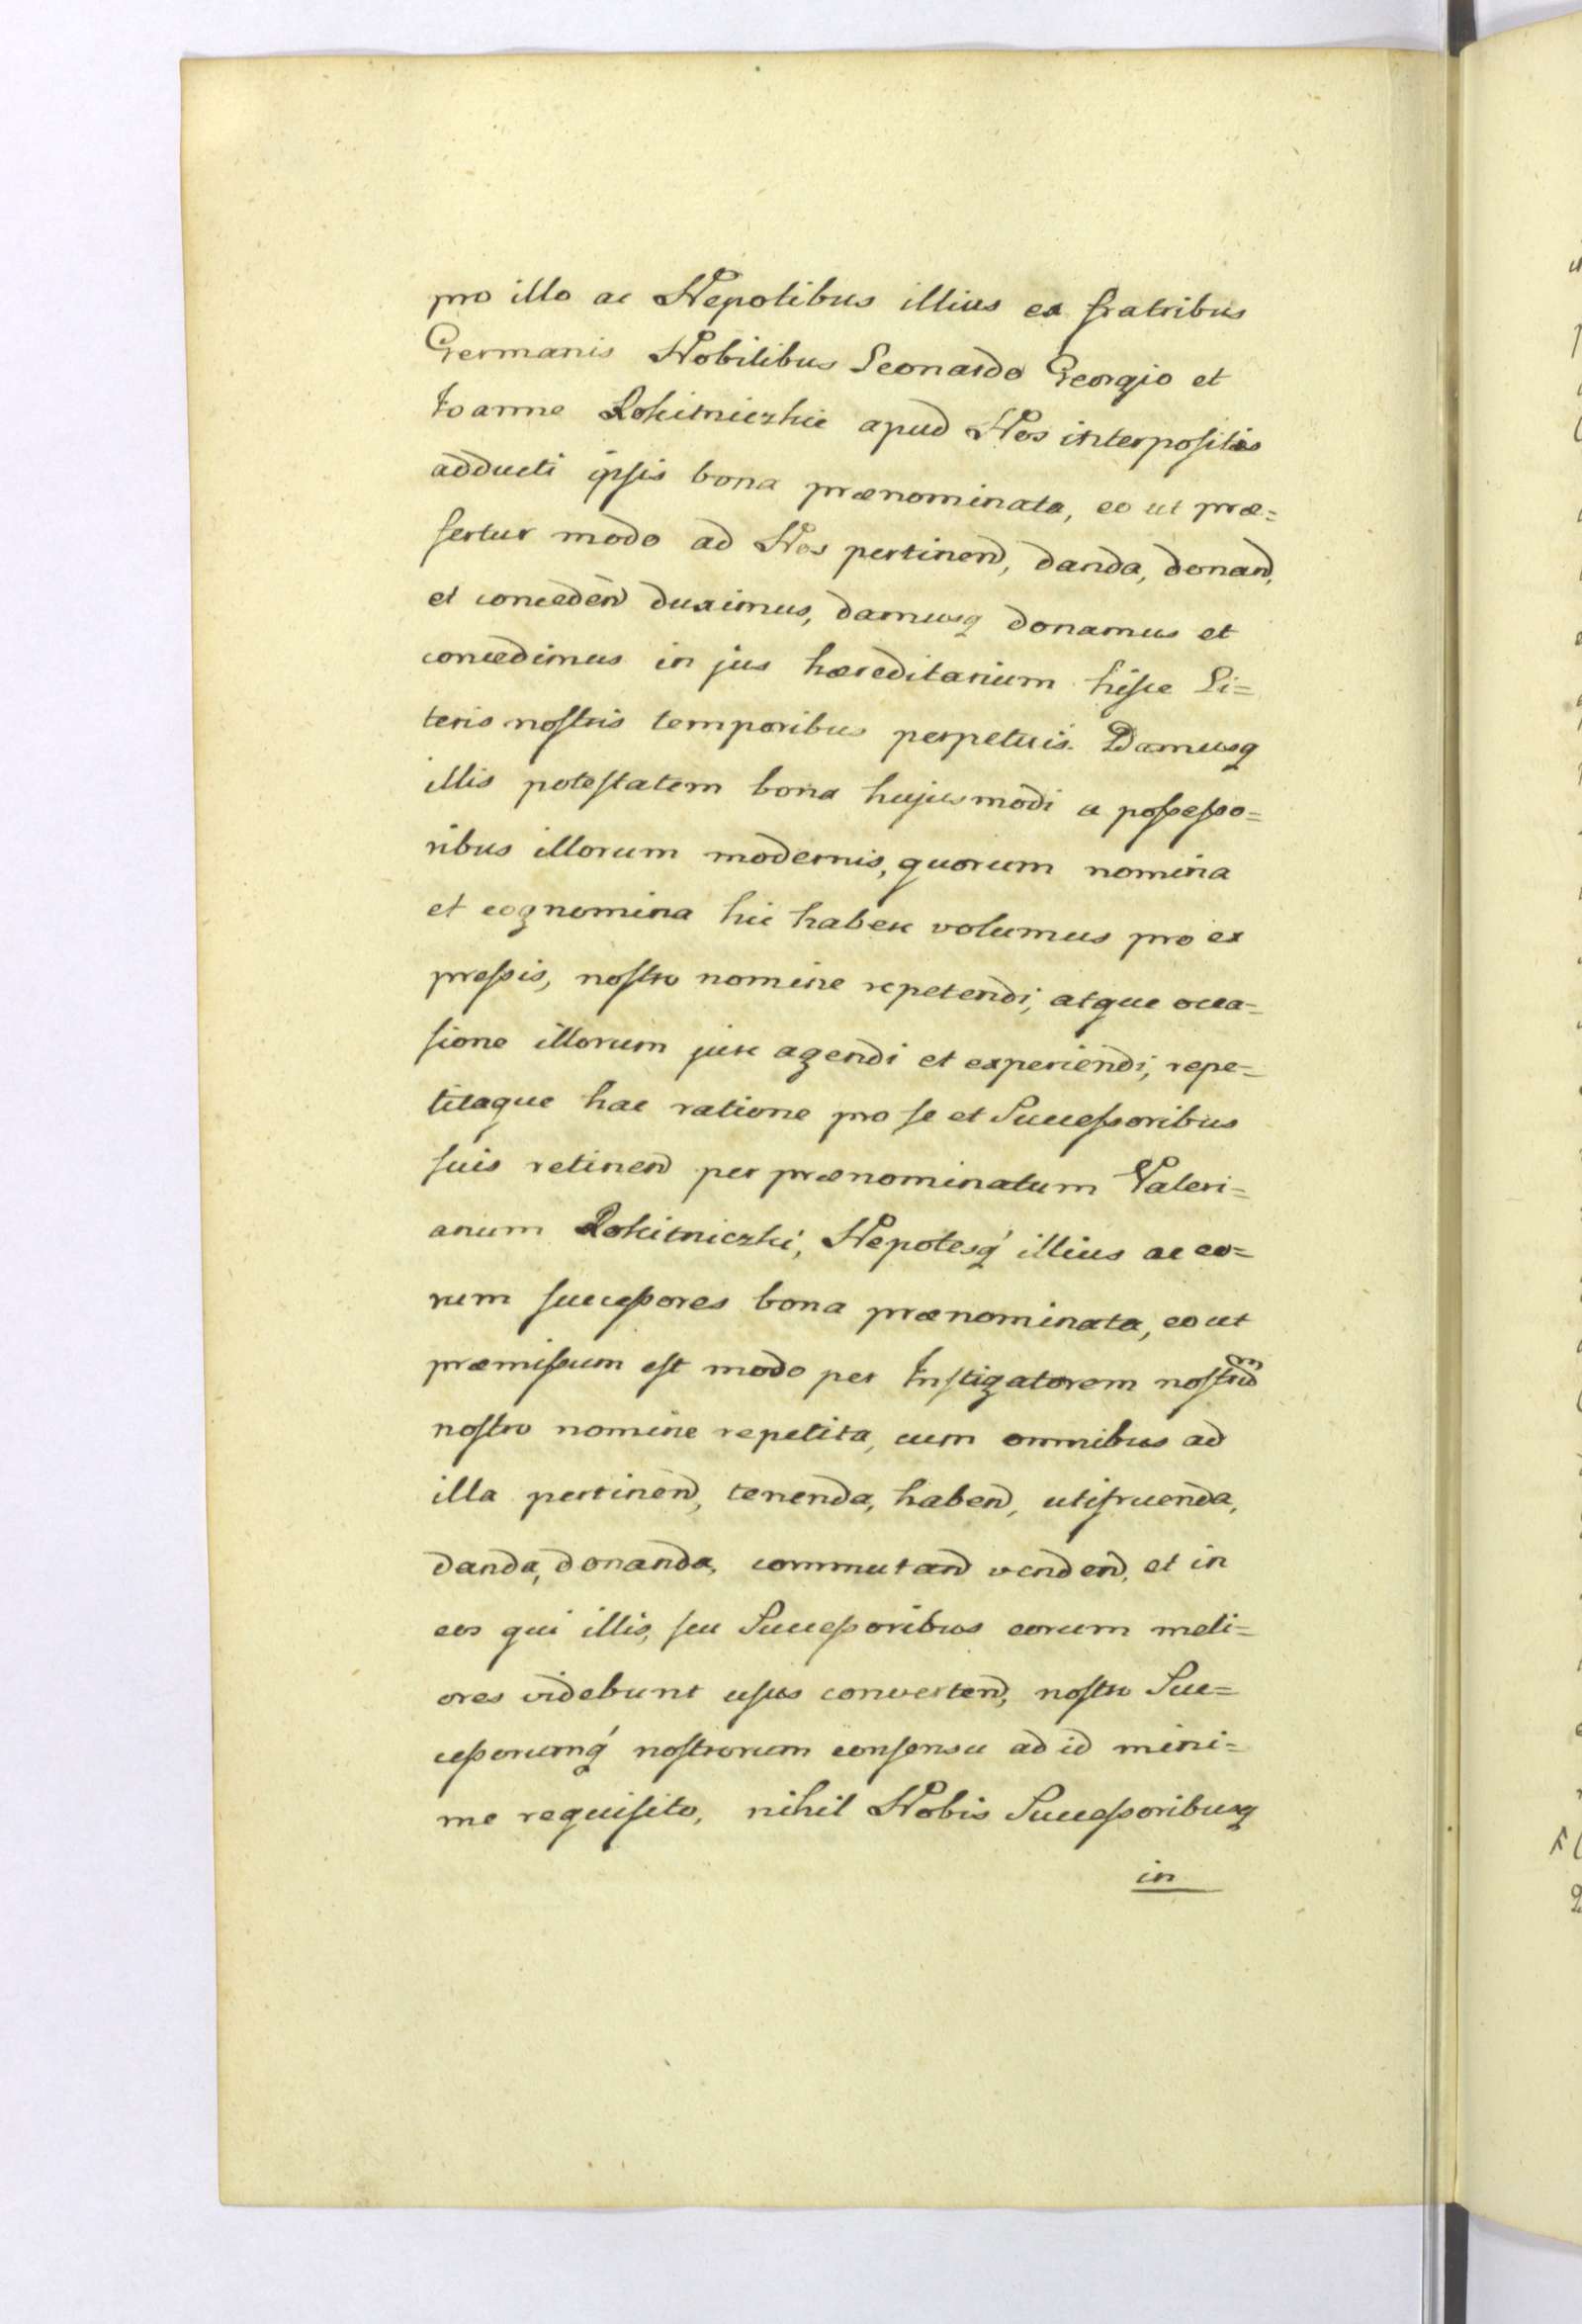 pro illo ac Nepotibus illius ex fratribus
Germanis Nobilibus Leonardo Georgio et
Joanne Rokitniczkie apud Nos interpositis
adducti ipsis bona prænominata, eo ut præ=
fertur modo ad Nos pertinend, danda, donand,
et conceden̄d duximus, damusq donamus et
concedimus in jus hæreditarium hisce Li=
teris nostris temporibus perpetuis. Damusq
illis potestatem bona hujusmodi a possesso=
ribus illorum modernis, quorum nomina
et cognomina hic habere volumus pro ex
pressis, nostro nomine repetendi, atque occa=
sione illorum jure agendi et experiendi, repe=
titaque hac ratione pro se et Successoribus
suis retinend per prænominatum Valeri=
anum Rokitniczki, Nepotesq́ illius ac eo=
rum successores bona prænominata, eo ut
præmissum est modo per Instigatorem nostrum
nostro nomine repetita, cum omnibus ad
illa pertinend, tenenda, habend, utifruenda,
danda, donanda, commutand vendend, et in
eos qui illis, seu Successoribus eorum meli=
ores videbunt usus convertend, nostro Suc=
cessorumq́ nostrorum consensu ad id mini=
me requisito, nihil Nobis Successoribusq
in